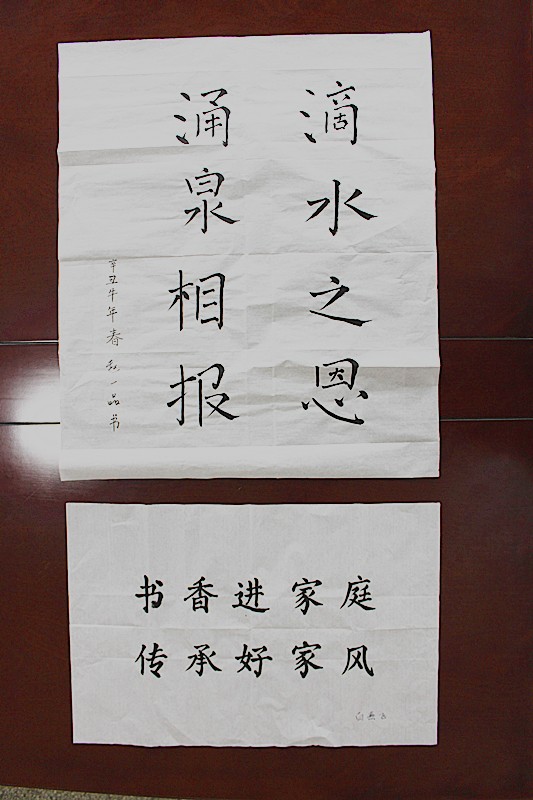 滴水之恩
涌泉相报
辛丑牛年春 一品书
书香进家庭
传承好家风